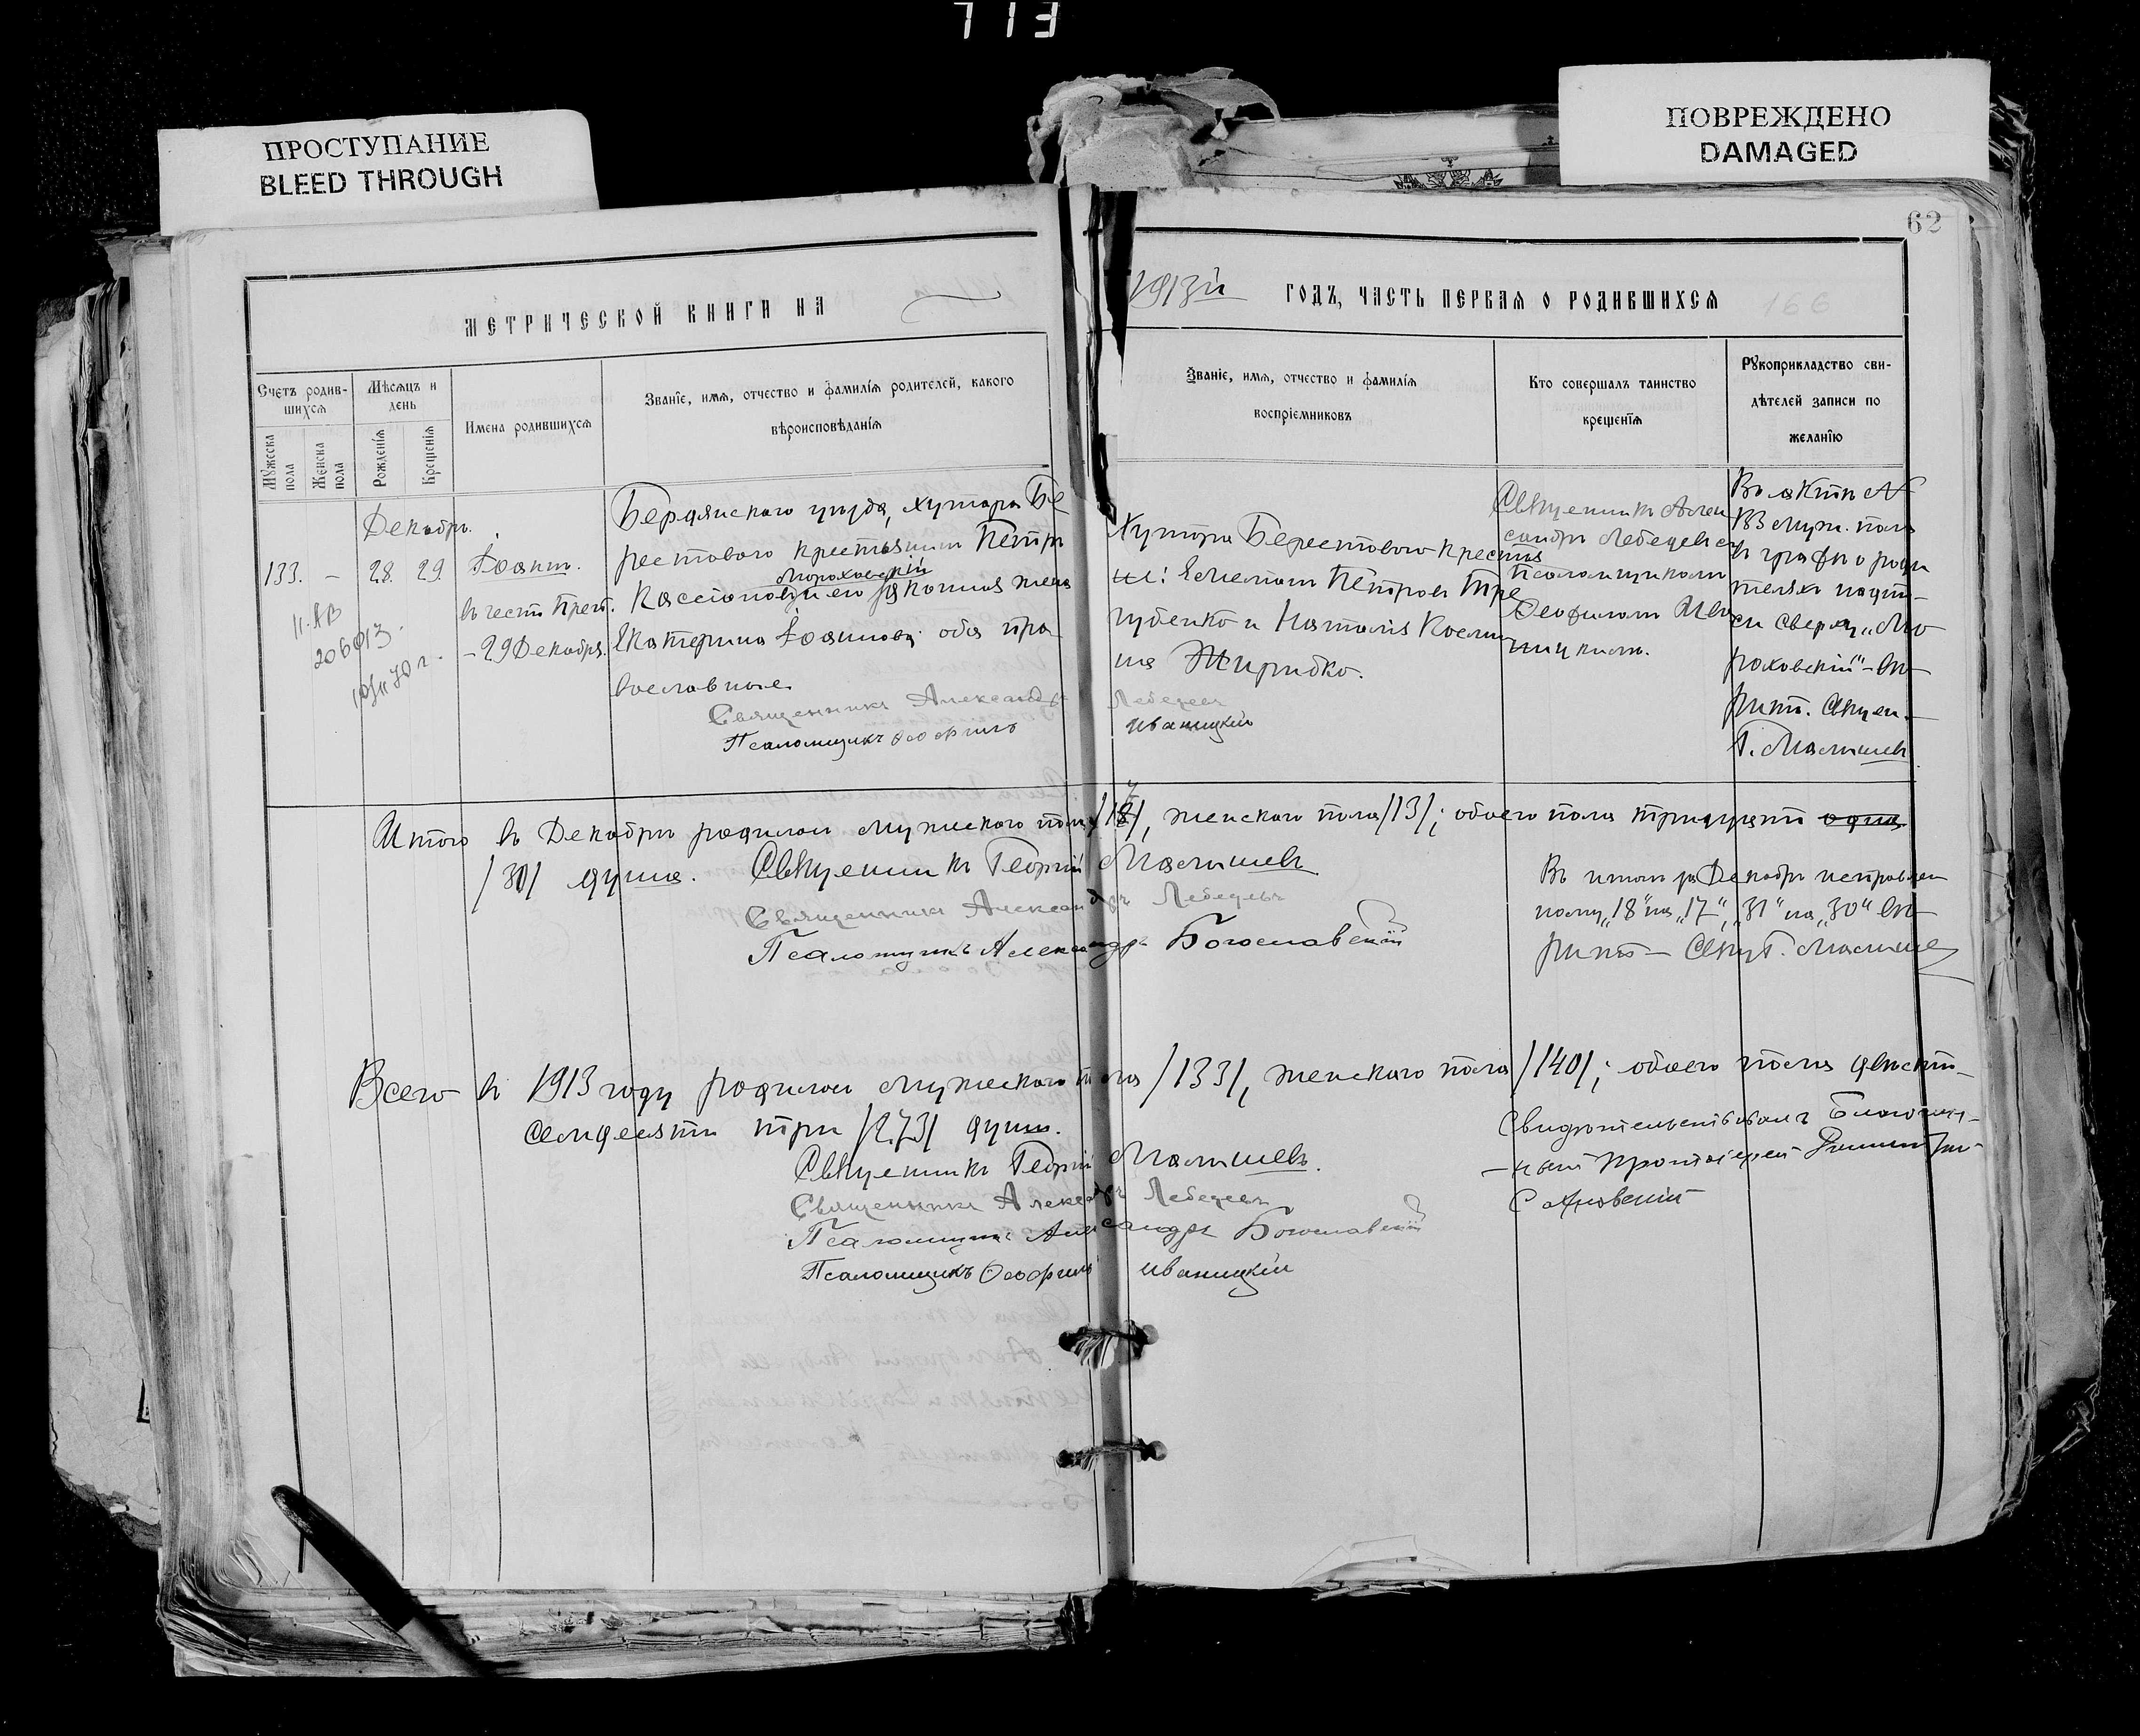 713
ПРОСТУПАНИЕ
BLEED THROUGH
ПОВРЕЖДЕНО
DAMAGED
62
МЕТРИЧЕСКОЙ КНИГИ НА
1913й ГОДЪ, ЧАСТЬ ПЕРВАЯ О РОДИВШИХСЯ
166
Счетъ родив-
шихся
Мужеска пола
Женска пола
Мѣсяцъ и
день
Рожденія
Крещенія
Имена родившихся
Званіе, имя, отчество и фамилія родителей, какого
вѣроисповѣданія
Званіе, имя, отчество и фамилія
воспріемниковъ
Кто совершалъ таинство
крещенія
Рукоприкладство сви-
дѣтелей записи по
желанію
Декабрь.
133. – 28. 29.
II. АВ
206013.
Іоаннъ.
въ честь Преп.
– 29 Декабря.
Бердянскаго уѣзда, хутора Бе
рестового крестьянинъ Петръ
Мороховскій
Кассіановъ и его законная жена
Екатерина Іоаннова; оба пра-
вославные.
Священникъ Александръ Лебедевъ
Псаломщикъ Ѳеофилъ Иваницкій
Хутора Берестового крестья
не: Емеліанъ Петровъ Тре
губенко и Наталія
на Жиридко.
Священникъ Алек
сандръ Лебедевъ съ
псаломщикомъ
Ѳеофиломъ Ива
ницкимъ.
Въ актѣ №
133 муж. пола
въ графѣ о роди
теляхъ надпи-
си сверху „Мо
роховскій“ – вѣ-
рить. Священ.
Г. Малышевъ
Итого въ Декабрѣ родилось мужескаго пола /17/, женскаго пола /13/; обоего пола тридцать одна
/30/ душа. Священникъ Георгій Малышевъ
Священникъ Александръ Лебедевъ
Псаломщикъ Александръ Богославскій
Въ итогѣ за Декабрь исправлен
ному „18“ на „17“, „31“ на „30“ вѣ-
рить – Свящ. Г. Малышевъ
Всего въ 1913 году родилось мужескаго пола /133/, женскаго пола /140/; обоего пола двѣсти
семдесятъ три /273/ души.
Священникъ Георгій Малышевъ.
Священникъ Александръ Лебедевъ
Псаломщикъ Александръ Богославскій
Псаломщикъ Ѳеофилъ Иваницкій
Свидѣтельствовалъ Благочин-
ный Протоіерей Димитрій